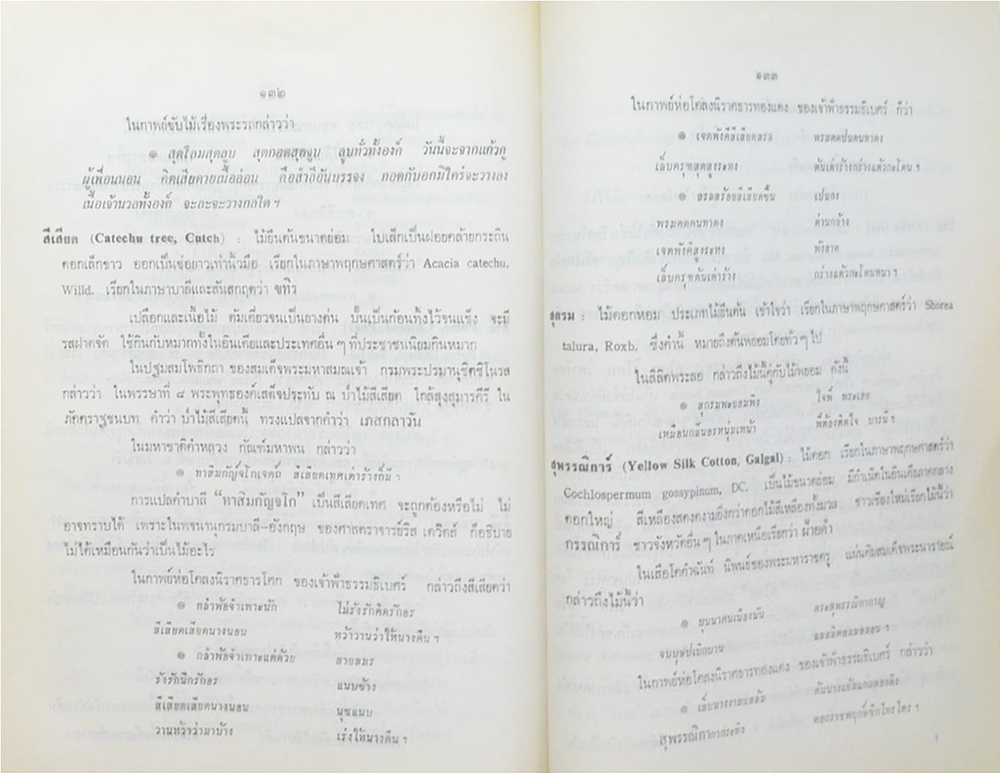 ๑๓๒
ในกาพย์ขับไม้เรื่องพระรถกล่าวว่า
๏ สุดโฉมสุดลูบ สุดกอดสุดจูบ ลูบทั่วทั้งองค์ วันนี้จะจากแก้วกู
ผู้เพื่อนนอน คิดเสียดายเนื้ออ่อน คือสำลีอันบรรจง กอดกับอกมิใคร่จะวางลง
เนื้อเจ้านวลทั้งองค์ จะละจะวางกลใด ฯ
สีเสียด (Catechu tree, Cutch) : ไม้ยืนต้นขนาดย่อม ใบเล็กเป็นฝอยคล้ายกระถิน
ดอกเล็กขาว ออกเป็นช่อยาวเท่านิ้วมือ เรียกในภาษาพฤกษศาสตร์ว่า Acacia catechu,
Willd. เรียกในภาษาบาลีและสันสกฤตว่า ขทิร
เปลือกและเนื้อไม้ ต้มเคี่ยวจนเป็นยางข้น ปั้นเป็นก้อนทิ้งไว้จนแข็ง จะมี
รสฝาดจัด ใช้กินกับหมากทั้งในอินเดียและประเทศอื่น ๆ ที่ประชาชนนิยมกินหมาก
ในปฐมสมโพธิกถา ของสมเด็จพระมหาสมณเจ้า กรมพระปรมานุชิตชิโนรส
กล่าวว่า ในพรรษาที่ ๘ พระพุทธองค์เสด็จประทับ ณ ป่าไม้สีเสียด ใกล้สุงสุมารคีรี ใน
ภัคคราฐชนบท คำว่า ป่าไม้สีเสียดนี้ ทรงแปลจากคำว่า เภสกลาวัน
ในมหาชาติคำหลวง กัณฑ์มหาพน กล่าวว่า
๏ ทาสิมกัญจโกเจตถ์ สีเสียดเทศเต่าร้างก็มี ฯ
การแปลคำบาลี “ทาสิมกัญจโก” เป็นสีเสียดเทศ จะถูกต้องหรือไม่ ไม่
อาจทราบได้ เพราะในพจนานุกรมบาลี-อังกฤษ ของศาสตราจารย์ริส เดวิดส์ ก็อธิบาย
ไม่ได้เหมือนกันว่าเป็นไม้อะไร
ในกาพย์ห่อโคลงนิราศธารโศก ของเจ้าฟ้าธรรมธิเบศร์ กล่าวถึงสีเสียดว่า
๏ กล้าพ้อจำเพาะนัก ไม้รังรักคิดรักอร
สีเสียดเสียดนางนอน หว้าวานว่าให้นางคืน ฯ
๏ กล้าพ้อจำเพาะแต่ด้วย สายสมร
รังรักนึกรักอร แนบข้าง
สีเสียดเสียดนางนอน นุชแนบ
วานหว้าว่ามาบ้าง เร่งให้นางคืน ฯ
๑๓๓
ในกาพย์ห่อโคลงนิราศธารทองแดง ของเจ้าฟ้าธรรมธิเบศร์ ก็ว่า
๏ เจตพังคีสีเสียดสรล พรมคตปนคนทาดง
เล็บครุฑสุดสูงระหง ต้นเต่าร้างกร่างแต้วกะโดน ฯ
๏ สรลสร้อยสีเสียดขึ้น เป็นกง
พรมคตคนทาดง ด่านกว้าง
เจตพังคีสูงระหง
เล็บครุฑต้นเต่าร้าง กร่างแต้วกะโดนหนา ฯ
สุกรม : ไม้ดอกหอม ประเภทไม้ยืนต้น เข้าใจว่า เรียกในภาษาพฤกษศาสตร์ว่า Shorea
talura, Roxb. ซึ่งคำนี้ หมายถึงต้นพยอมโดยทั่ว ๆ ไป
ในลิลิตพระลอ กล่าวถึงไม้นี้คู่กับไม้พยอม ดังนี้
๏ สุกรมพะยอมพึง ใจพี่ พระเอย
เหมือนกลิ่นอรหนุ่มเหน้า พี่ต้องติดใจ บารนี ฯ
สุพรรณิการ์ (Yellow Silk Cotton, Galgal) : ไม้ดอก เรียกในภาษาพฤกษศาสตร์ว่า
Cochlospermum gossypinum, DC. เป็นไม้ขนาดย่อม มีกำเนิดในอินเดียภาคกลาง
ดอกใหญ่ สีเหลืองสดงดงามยิ่งกว่าดอกไม้สีเหลืองทั้งมวล ชาวเชียงใหม่เรียกไม้นี้ว่า
กรรณิการ์ ชาวจังหวัดอื่น ๆ ในภาคเหนือเรียกว่า ฝ้ายคำ
ในเสือโคคำฉันท์ นิพนธ์ของพระมหาราชครู แผ่นดินสมเด็จพระนารายณ์
กล่าวถึงไม้นี้ว่า
๏ บุนนาคเนืองนันต์
ในกาพย์ห่อโคลงนิราศธารทองแดง ของเจ้าฟ้าธรรมธิเบศร์ กล่าวว่า
๏ เล็บนางงามแสล้ม ต้นนางแย้มแกมดองดึง
สุพรรณิกากากะทิง ดอกราชพฤกษ์ซึกไทรไตร ฯ